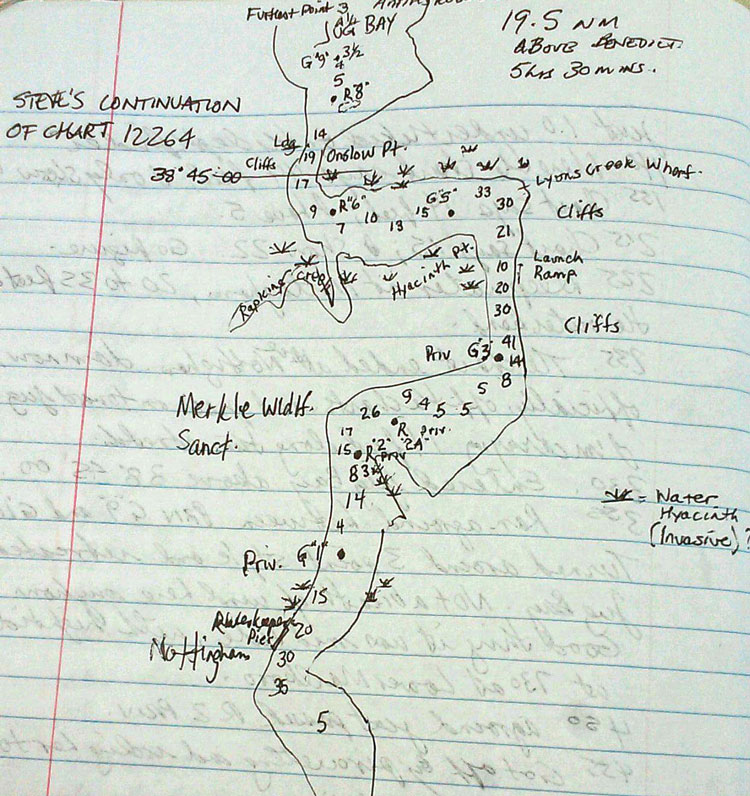 Furthest Point 3
JUG BAY
19.5 NM
ABOVE BENEDICT.
5 hrs 30 mins.
G "9" 3½
4
5
R"8"
STEVE'S CONTINUATION
OF CHART 12264
14
Ldg
19 Onslow Pt.
Cliffs
38° 45-00
17
Lyons Creek Wharf.
9 R"6" 10 13 15 G"5" 33 30
7
Cliffs
21
Hyacinth Pt.
Launch
10 Ramp
20
Creek
30
Cliffs
41
Priv G"3"
14
8
Merkle Wldlf.
Sanct.
26 9 4 5 5 5
17 R Priv.
15 R "2" "2A"
Priv
8 3
14
= Water
Hyacinth
(Invasive)?
4
Priv. G"1"
15
Riverkeepers
Pier 20
Nottingham
30
35
5